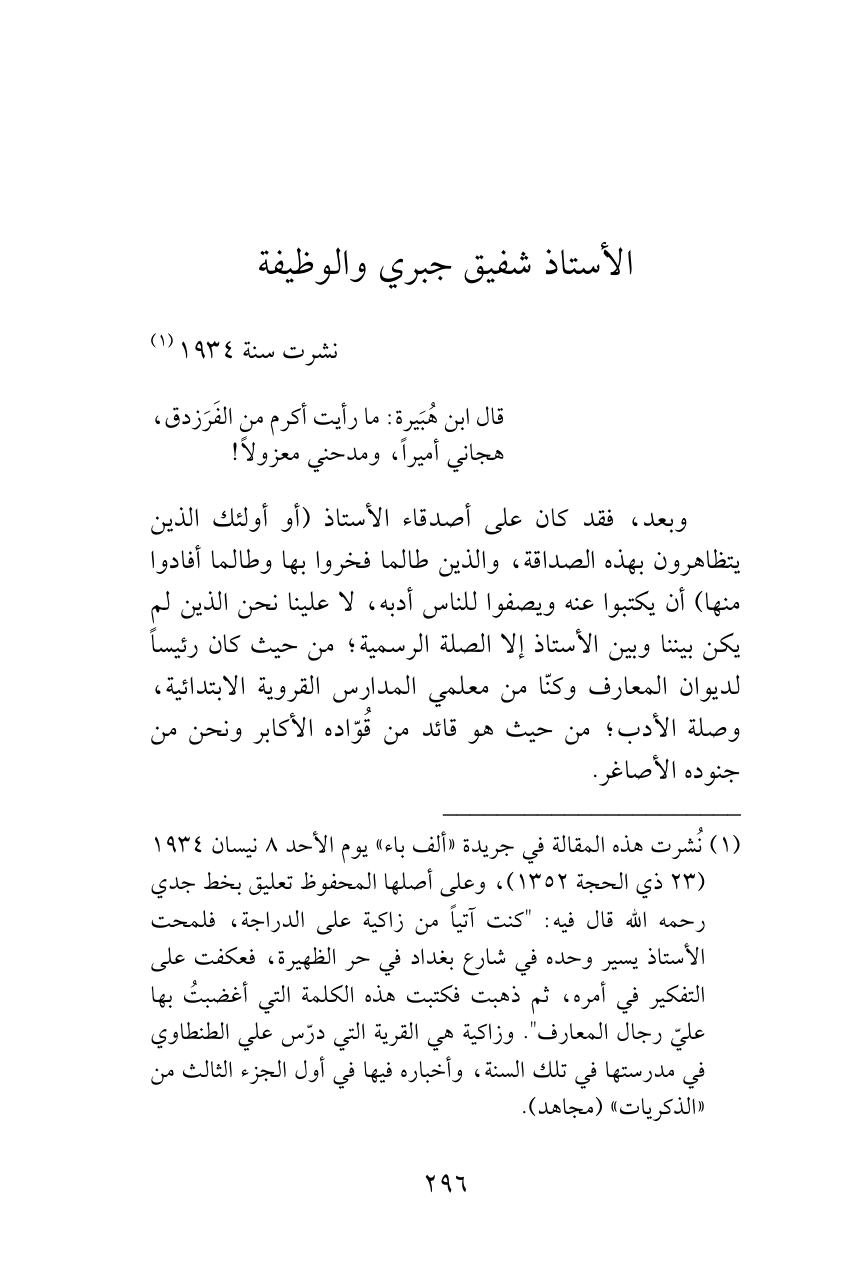 الأستاذ شفيق جبري والوظيفة
نشرت سنة ١٩٣٤ (١)
قال ابن هُبَيرة: ما رأيت أكرم من الفَرَزدق،
هجاني أميراً، ومدحني معزولاً!
وبعد، فقد كان على أصدقاء الأستاذ (أو أولئك الذين
يتظاهرون بهذه الصداقة، والذين طالما فخروا بها وطالما أفادوا
منها) أن يكتبوا عنه ويصفوا للناس أدبه، لا علينا نحن الذين لم
يكن بيننا وبين الأستاذ إلا الصلة الرسمية؛ من حيث كان رئيساً
لديوان المعارف وكنّا من معلمي المدارس القروية الابتدائية،
وصلة الأدب؛ من حيث هو قائد من قُوّاده الأكابر ونحن من
جنوده الأصاغر.
(١) نُشرت هذه المقالة في جريدة «ألف باء» يوم الأحد ٨ نيسان ١٩٣٤
(٢٣ ذي الحجة ١٣٥٢)، وعلى أصلها المحفوظ تعليق بخط جدي
رحمه الله قال فيه: "كنت آتياً من زاكية على الدراجة، فلمحت
الأستاذ يسير وحده في شارع بغداد في حر الظهيرة، فعكفت على
التفكير في أمره، ثم ذهبت فكتبت هذه الكلمة التي أغضبتُ بها
عليّ رجال المعارف". وزاكية هي القرية التي درّس علي الطنطاوي
في مدرستها في تلك السنة، وأخباره فيها في أول الجزء الثالث من
«الذكريات» (مجاهد).
٢٩٦